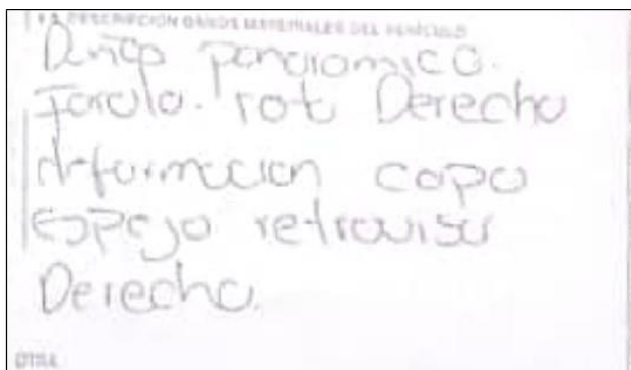 DESCRIPCIÓN DAÑOS MATERIALES DEL VEHÍCULO
Daño panoramico.
Farola. roto Derecho
deformacion capo
espejo retrovisor
Derecho.